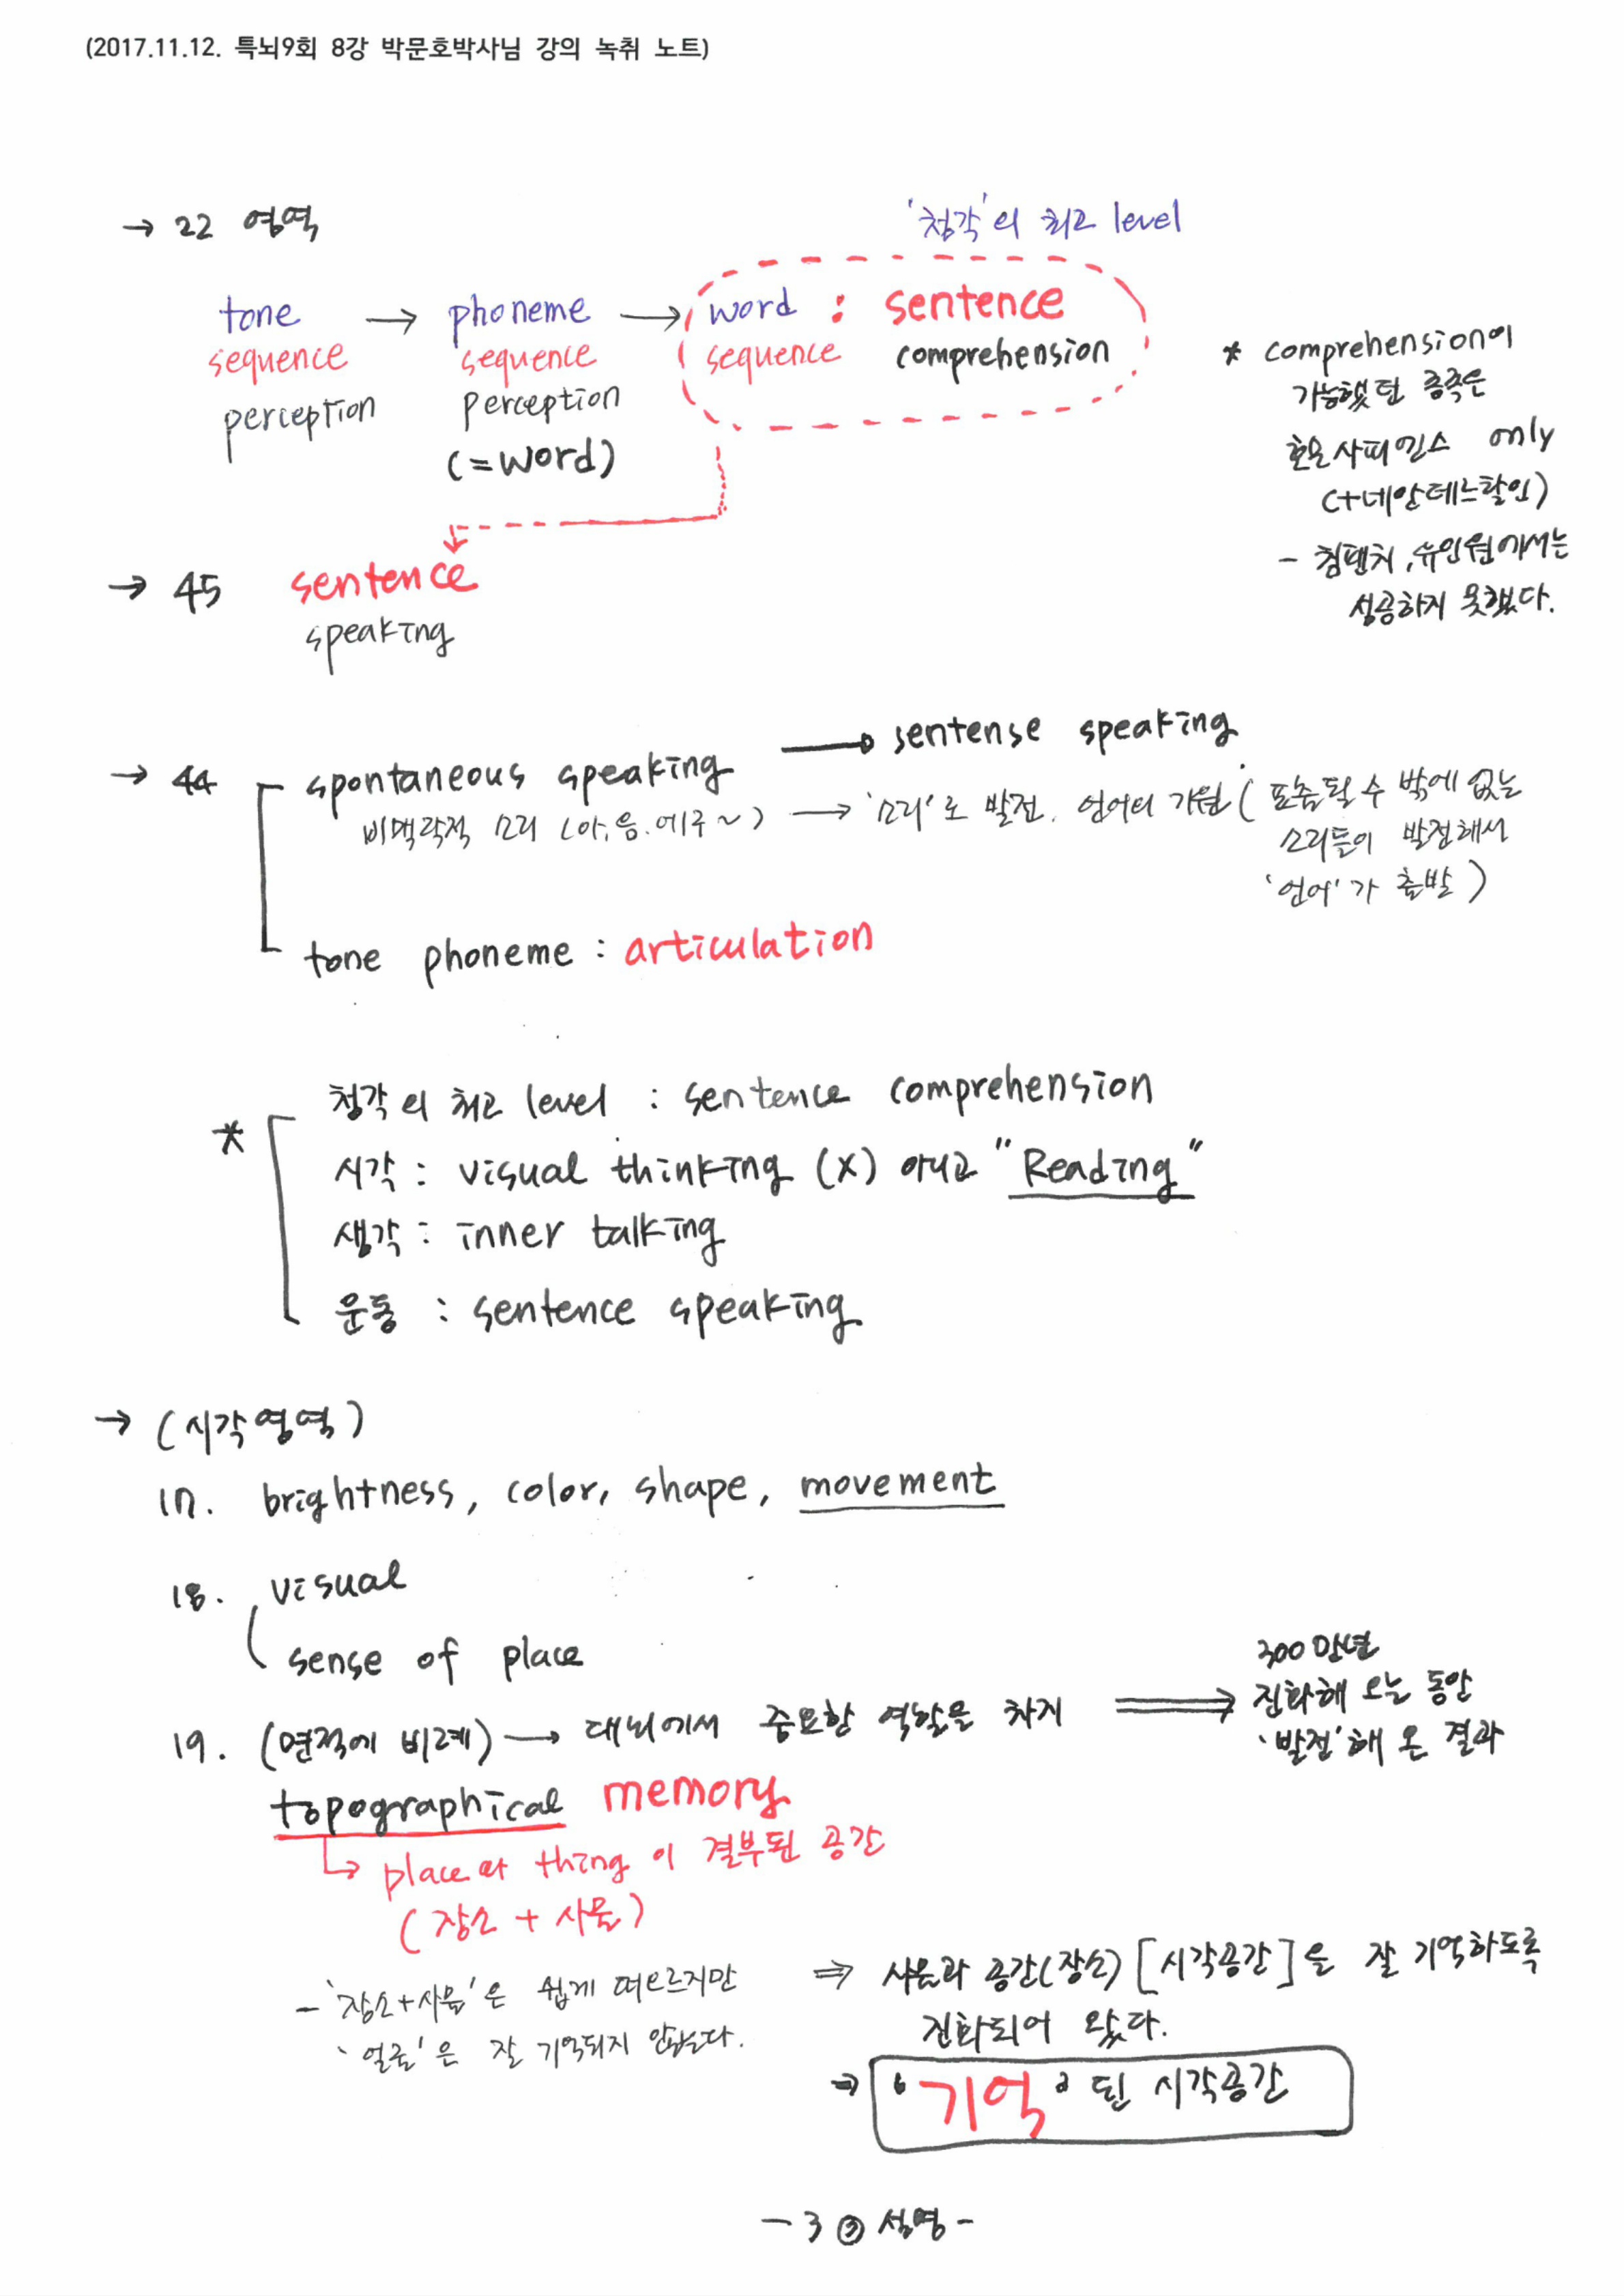 (2017.11.12. 특뇌9회 8강 박문호박사님 강의 녹취 노트)
→ 22 영역
'청각'의 최고 level
tone → phoneme → word : sentence
sequence sequence sequence comprehension
perception perception
(=word)
* comprehension이
가능했던 종족은
호모사피엔스 only
(+네안데르탈인)
- 침팬치, 유인원에서는
성공하지 못했다.
→ 45 sentence
speaking
→ 44 spontaneous speaking → sentense speaking
비맥락적 소리 (아, 음. 에구~) → '소리'로 발전. 언어의 기원 (표출될 수 밖에 없는
소리들이 발전해서
'언어'가 출발)
tone phoneme : articulation
* 청각의 최고 level : sentence comprehension
시각 : visual thinking (x) 아니고 "Reading"
생각 : inner talking
운동 : sentence speaking
→ (시각영역)
17. brightness, color, shape, movement
18. visual
sense of place
19. (면적에 비례) → 대뇌에서 중요한 역할을 차지 ⟹ 300만년
진화해 오는 동안
'발전'해 온 결과
topographical memory
↳ place와 thing이 결부된 공간
(장소 + 사물)
- '장소+사물'은 쉽게 떠오르지만
'얼굴'은 잘 기억되지 않는다.
⇒ 사물과 공간(장소) [시각공간]을 잘 기억하도록
진화되어 왔다.
⇒ '기억'된 시각공간
- 3 ③ 설명 -